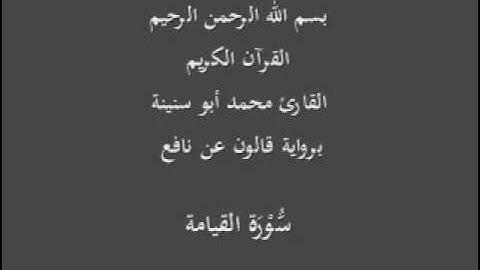 بسم الله الرحمن الرحيم
القرآن الكريم
القارئ محمد أبو سنينة
برواية قالون عن نافع
سُّوْرَة القيامة